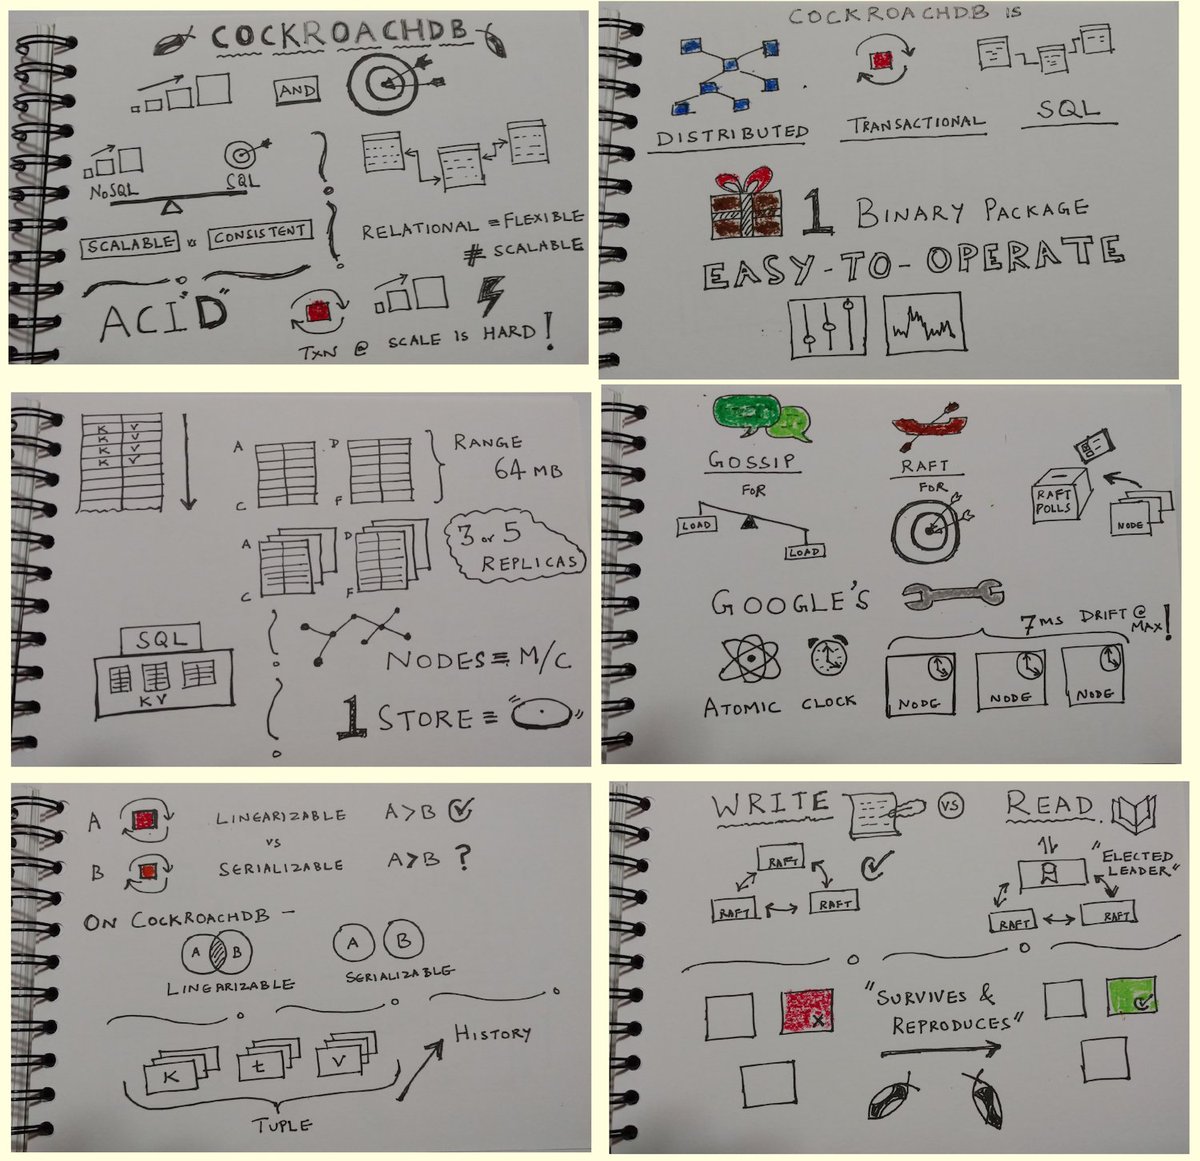 COCKROACHDB
AND
NoSQL
SQL
SCALABLE vs CONSISTENT
RELATIONAL = FLEXIBLE
≠ SCALABLE
ACI"D"
TXN @ SCALE IS HARD!
COCKROACHDB IS
DISTRIBUTED
TRANSACTIONAL
SQL
1 BINARY PACKAGE
EASY-TO-OPERATE
K V
K V
K V
K V
A
D
C
F
RANGE
64 MB
A
D
C
F
3 or 5
REPLICAS
SQL
KV
NODES ≡ M/C
1 STORE ≡
GOSSIP
FOR
LOAD
LOAD
RAFT
FOR
RAFT
POLLS
NODE
GOOGLE'S
ATOMIC CLOCK
7MS DRIFT @
MAX!
NODE
NODE
NODE
A
LINEARIZABLE A>B
VS
B
SERIALIZABLE A>B ?
ON COCKROACHDB -
A B
LINEARIZABLE
A B
SERIALIZABLE
K t V
TUPLE
HISTORY
WRITE VS READ
RAFT
RAFT
RAFT
"ELECTED
LEADER"
RAFT
RAFT
"SURVIVES &
REPRODUCES"